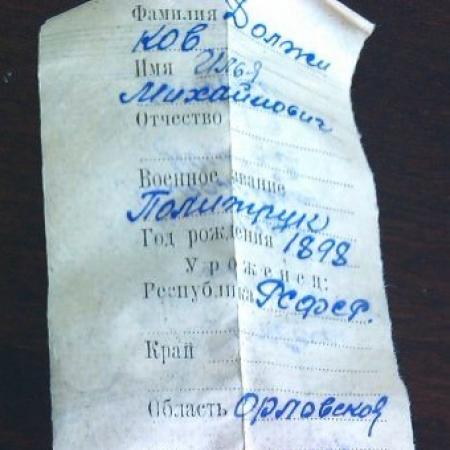 Фамилия Должи
ков
Имя Илья
Михайлович
Отчество
Военное звание
Политрук
Год рождения 1898
Уроженец:
Республика РСФСР.
Край
Область Орловской